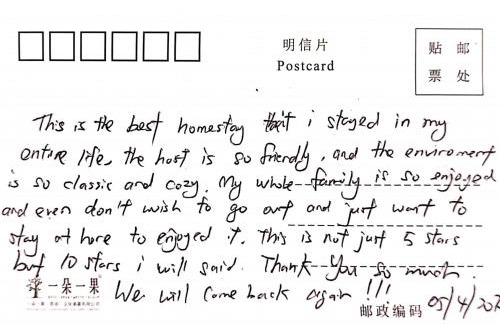 明信片
Postcard
贴 邮
票 处
This is the best homestay that i stayed in my
entire life, the host is so friendly, and the enviroment
is so classic and cozy. My whole family is so enjoyed
and even don't wish to go out and just want to
stay at here to enjoyed it. This is not just 5 stars
but 10 stars i will said. Thank you so much.
We will come back again !!!
一朵一果
邮政编码
05/4/202